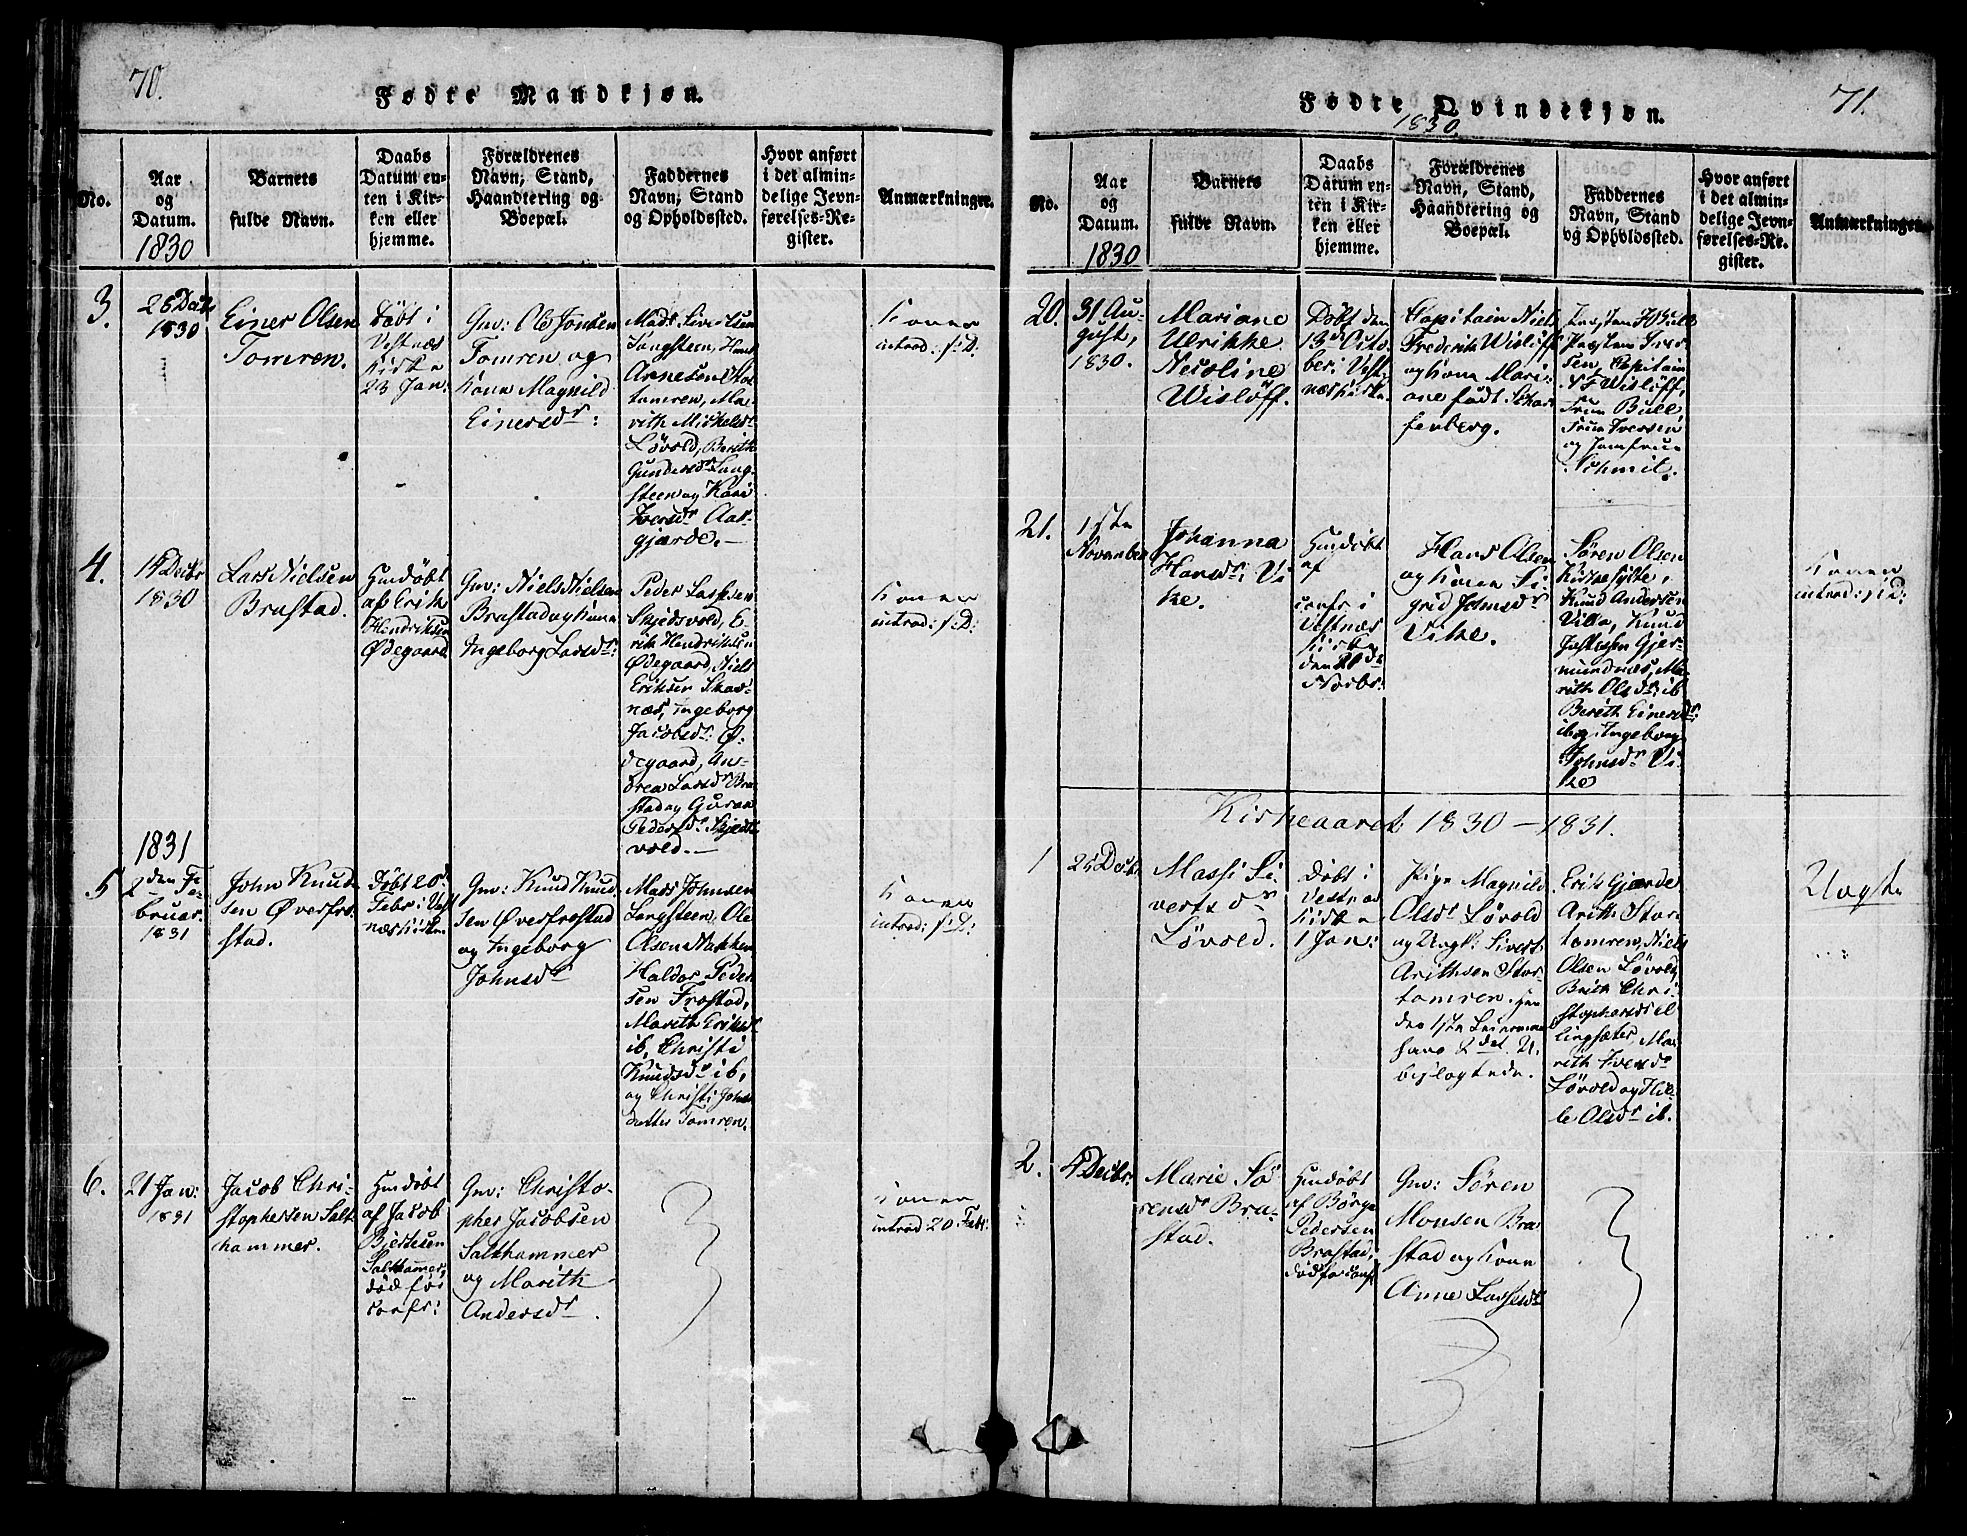 70.
Fødte Mandkjøn.
No.
Aar
og
Datum.
1830
Barnets
fulde Navn.
Daabs
Datum en-
ten i Kir-
ken eller
hjemme.
Forældrenes
Navn, Stand,
Haandtering og
Boepæl.
Faddernes
Navn, Stand
og Opholdssted.
Hvor anført
i det almin-
delige Jevn-
førelses-Re-
gister.
Anmærkninger.
3.
1830
Einer Olsen
Tomren.
Døbt i
Vestnæs
Kirke
23 Jan:
Gm: Ole Jonsen
Tomren og
Kone Magnild
Einersdr:
Mads Sivertsen
Langsteen, Hans
Arnesen Stor
tomren, Ma-
rith Mickelsdr
Løvold, Berith
Gundersdr Lang-
steen og Kari
Iversdr Aas-
gjærde.-
Konen
introd: s: D:
4.
14 Decbr
1830
Lars Nielsen
Brastad.
Hmdøbt
af Erik
Hendriksen
Ødegaard
Gm: Niels Nielsen
Brastad og Kone
Ingeborg Larsdr:
Peder Lassesen
Skjedsvold, E-
rik Hendriksen
Ødegaard, Niels
Eriksen Skor-
næs, Ingeborg
Jacobsdr: Ø-
degaard, An-
drea Larsdr Bra
stad og Guran
Pedersdr Skjeds
vold.-
Konen
introd: s: D:
1831
5
2den Fe-
bruar.
1831
John Knud-
sen Øverfro-
stad.
Døbt 20d
Febr: i Vest
næs Kirke
Gm: Knud Knud
sen Øverfrostad
og Ingeborg
Johnsdr
Mads Johnsen
Langsteen, Ole
Olsen Nakken
Haldor Peder
sen Frostad,
Marith Eriksdr
ib, Christi
Knudsdr ib,
og Christi Johns
datter Tomren.
Konen
introd: s: D:
6.
21 Jan:
1831
Jacob Chri-
stophersen Salt
hammer.
Hmdøbt
af Jacob
Bjertesen
Salthamer,
død før
conf:
Gm: Christo-
pher Jacobsen
Salthammer
og Marith
Andersdr.
Konen
introd: 20 Febr:
71.
Fødte Qvindekjøn.
1830.
No.
Aar
og
Datum.
1830
Barnets
fulde Navn.
Daabs
Datum en-
ten i Kir-
ken eller
hjemme.
Forældrenes
Navn, Stand,
Haandtering og
Boepæl.
Faddernes
Navn, Stand
og Opholdssted.
Hvor anført
i det almin-
delige Jevn-
førelses-Re-
gister.
Anmærkninger.
20.
31 Au-
gust,
1830.
Mariane
Ulrikke
Nicoline
Wisløff.
Døbt den
13d Octo-
ber i Vest-
næs Kirke.
Capitain Niels
Frederik Wisløff
og Kone Mari-
ane født Schar
fenberg.
Præsten Bull
Præsten Iver
sen, Capitain
N F Wisløff,
Frue Bull,
Frue Iversen
og Jomfrue
Schmit.
21.
1ste
November
Johanna
Hansdr: Vi
ke.
Hmdøbt
af
conf: i
Vestnæs
Kirke
den
Novbr:
Hans Olsen
og Kone Si-
grid Johnsdr
Vike.
Søren Olsen
Kirkesylte,
Knud Andersen
Villa, Knud
Gjer-
mundnæs, Ma-
rith Olsdr: ib
Berith Einersdr:
ib og Ingeborg
Johnsdr Vi-
ke
Konen
introd: s: D:
Kirkeaaret 1830 - 1831.
1
Massi Si-
vertsdr
Løvold.
Døbt i
Vestnæs
Kirke
1 Jan:
Pige Magnild
Olsdr Løvold
og Ungk: Sivert
Arithsen Stor
tomren. Hen
des 1ste Leiermaal
hans 2det. U-
beslægtede.
Erik Gjærde
Arith Stor-
tomren, Niels
Olsen Løvold,
Berith Chri-
stophersdr El-
lingsæter, Ma-
rith Iversdr
Løvold og Hil-
le Olsdr ib.
Uægte
2.
4 Decbr.
Marie Sø-
rensdr Bra-
stad.
Hmdøbt
af Børge
Pedersen
Brastad,
død før conf
Gm: Søren
Monsen Bra
stad og Kone
Anne Lassesdr